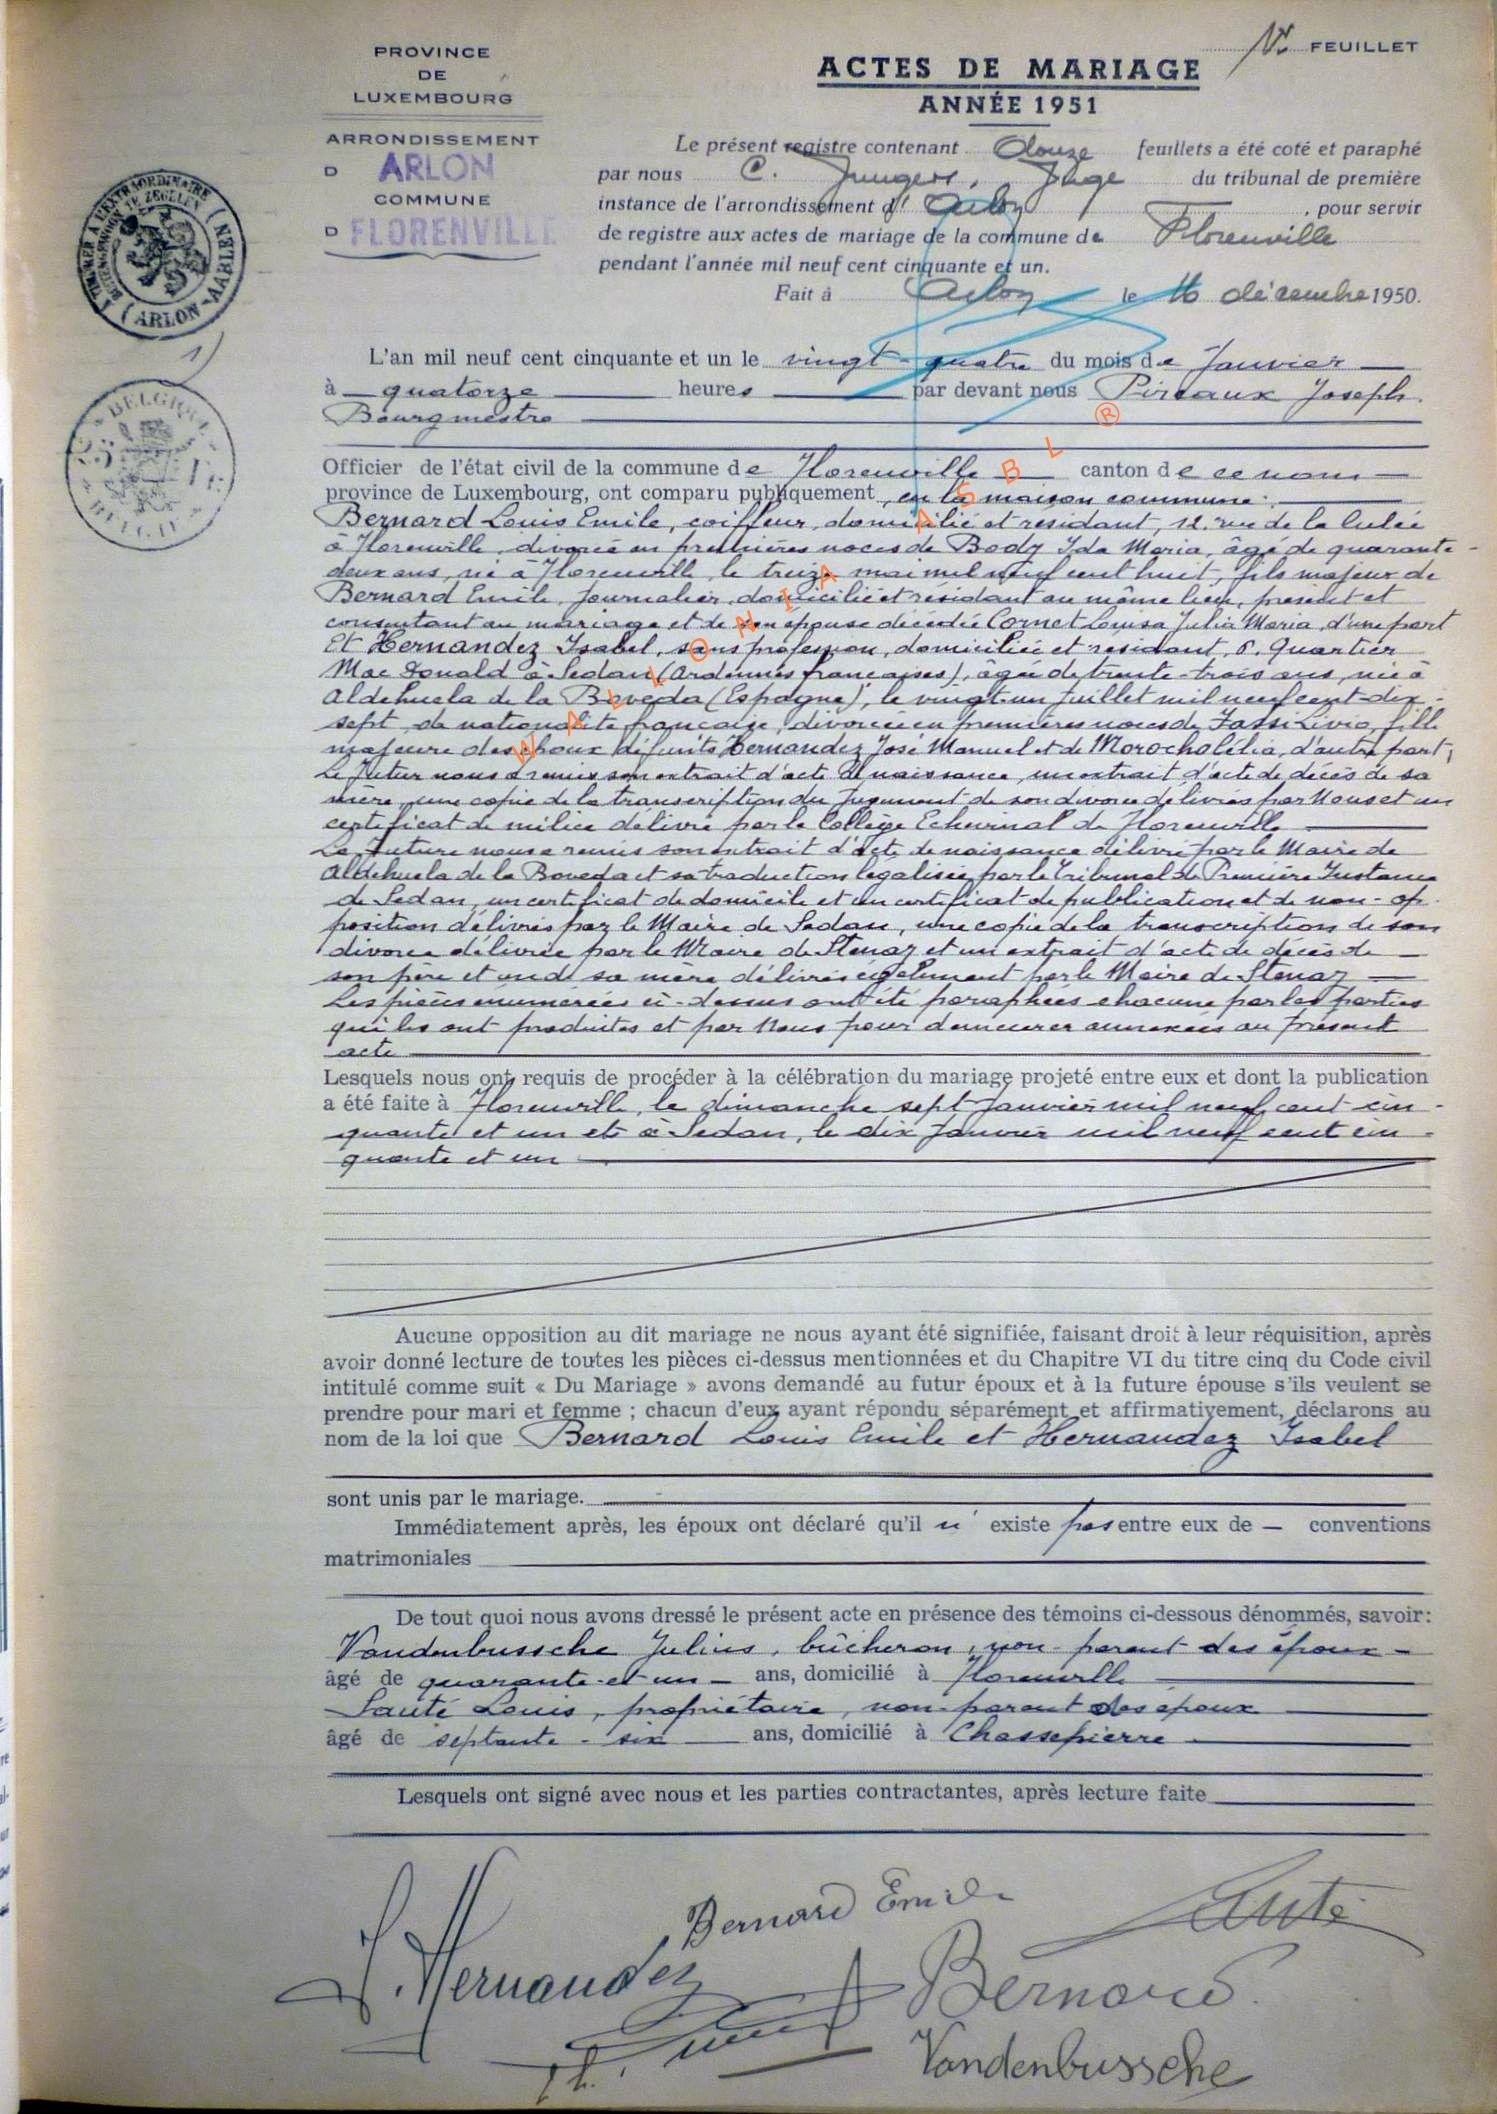 PROVINCE
DE
LUXEMBOURG
ARRONDISSEMENT
D ARLON
COMMUNE
D FLORENVILLE
FEUILLET
ACTES DE MARIAGE
ANNÉE 1951
Le présent registre contenant douze feuillets a été coté et paraphé
par nous C. Jungers, Juge du tribunal de première
instance de l'arrondissement d' Arlon, pour servir
de registre aux actes de mariage de la commune de Florenville
pendant l'année mil neuf cent cinquante et un.
Fait à Arlon le 16 décembre 1950.
TIMBRER A L'EXTRAORDINAIRE
BUITENGEWOON TE ZEGELEN
(ARLON) (AARLEN)
1)
BELGIQUE
BELGIE
L'an mil neuf cent cinquante et un le vingt-quatre du mois de Janvier
à quatorze heures par devant nous Pireaux Joseph.
Bourgmestre
Officier de l'état civil de la commune de Florenville canton de ce nom
province de Luxembourg, ont comparu publiquement, en la maison commune:
Bernard Louis Emile, coiffeur, domicilié et résidant, 12. rue de la Culée
à Florenville, divorcé en premières noces de Body Ida Maria, âgé de quarante-
deux ans, né à Florenville, le treize mai mil neuf cent huit, fils majeur de
Bernard Emile, Journalier, domicilié et résidant au même lieu, présent et
consentant au mariage et de son épouse décédée Cornet Louisa Julia Maria, d'une part
Et Hernandez Isabel, sans profession, domiciliée et résidant, 6. Quartier
Mac Donald à Sedan (Ardennes françaises), âgée de trente-trois ans, née à
Aldehuela de la Boveda (Espagne), le vingt-un Juillet mil neuf cent dix-
sept, de nationalité française, divorcée en premières noces de Fassi Livio, fille
majeure des époux défunts Hernandez José Manuel et de Morocho Célia, d'autre part;
Le futur nous a remis son extrait d'acte de naissance, un extrait d'acte de décès de sa
mère, une copie de la transcription du Jugement de son divorce délivrés par Nous et un
certificat de milice délivré par le Collège Echevinal de Florenville
La future nous a remis son extrait d'acte de naissance délivré par le Maire de
Aldehuela de la Boveda et sa traduction légalisée par le Tribunal de Première Instance
de Sedan, un certificat de domicile et un certificat de publication et de non-op-
position délivrés par le Maire de Sedan, une copie de la transcription de son
divorce délivrée par le Maire de Stenay et un extrait d'acte de décès de
son père et un de sa mère délivrés également par le Maire de Stenay
Les pièces énumérées ci-dessus ont été paraphées chacune par les parties
qui les ont produites et par Nous pour demeurer annexées au présent
acte
Lesquels nous ont requis de procéder à la célébration du mariage projeté entre eux et dont la publication
a été faite à Florenville, le dimanche sept Janvier mil neuf cent cin-
quante et un et à Sedan, le dix Janvier mil neuf cent cin-
quante et un
Aucune opposition au dit mariage ne nous ayant été signifiée, faisant droit à leur réquisition, après
avoir donné lecture de toutes les pièces ci-dessus mentionnées et du Chapitre VI du titre cinq du Code civil
intitulé comme suit « Du Mariage » avons demandé au futur époux et à la future épouse s'ils veulent se
prendre pour mari et femme ; chacun d'eux ayant répondu séparément et affirmativement, déclarons au
nom de la loi que Bernard Louis Emile et Hernandez Isabel
sont unis par le mariage.
Immédiatement après, les époux ont déclaré qu'il n' existe pas entre eux de — conventions
matrimoniales
De tout quoi nous avons dressé le présent acte en présence des témoins ci-dessous dénommés, savoir:
Vandenbussche Julius, bûcheron, non-parent des époux
âgé de quarante-et-un ans, domicilié à Florenville
Lauté Louis, propriétaire, non-parent des époux
âgé de septante-six ans, domicilié à Chassepierre
Lesquels ont signé avec nous et les parties contractantes, après lecture faite
I. Hernandez
Bernard Emile
Lauté
Bernard.
Vandenbussche
WALLONIA ASBL ®